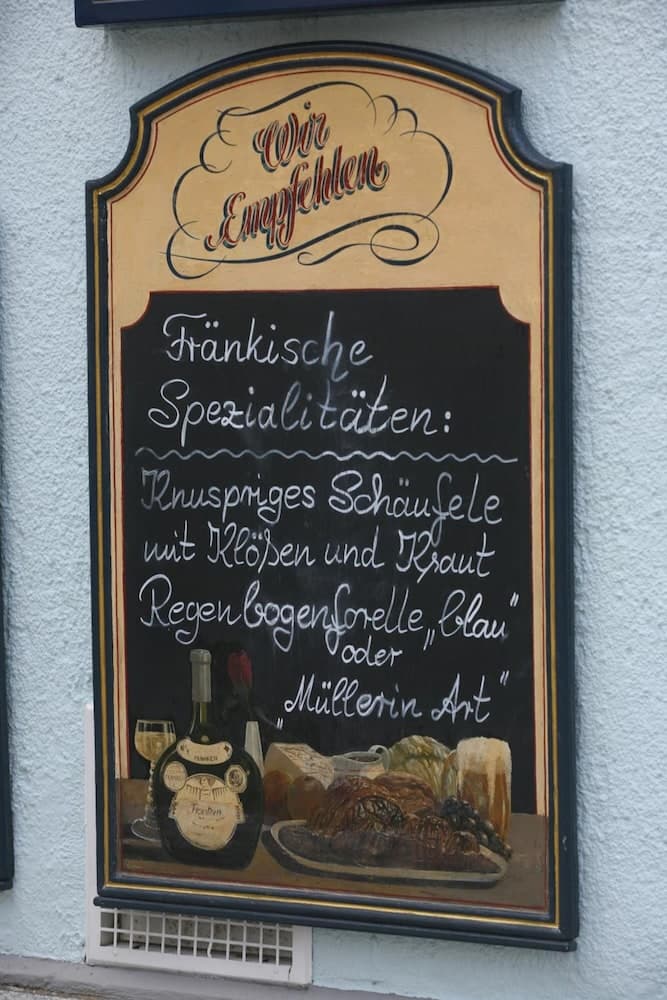 Wir
Empfehlen
Fränkische
Spezialitäten:
Knuspriges Schäufele
mit Klößen und Kraut
Regenbogenforelle „blau"
oder
„Müllerin Art"
Franken